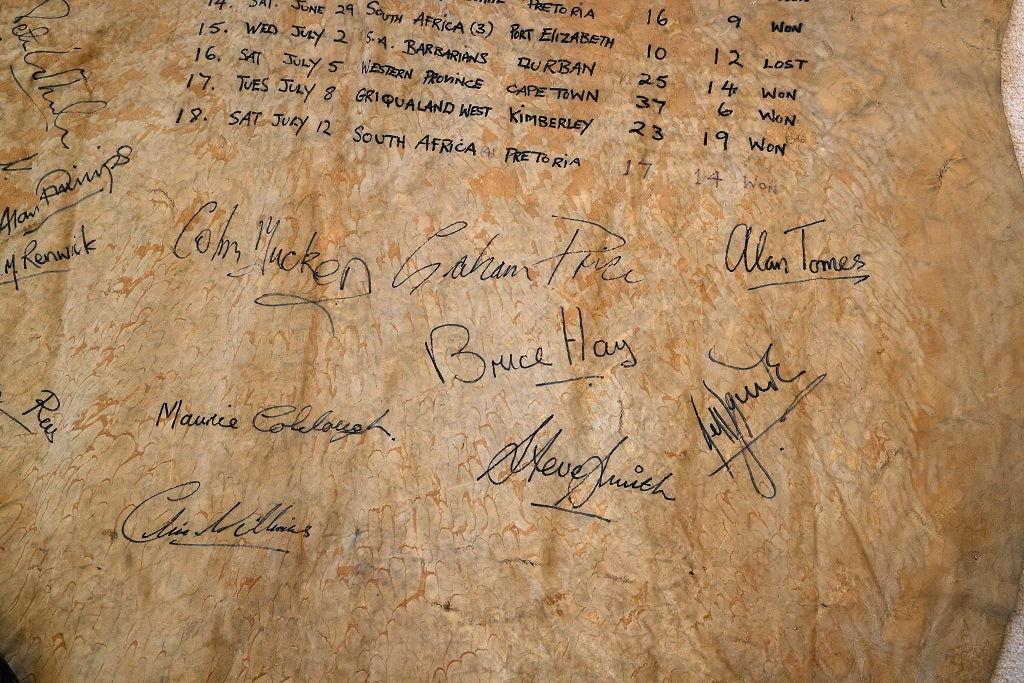 PRETORIA 16 9 WON
14. SAT. JUNE 29 SOUTH AFRICA (3) PORT ELIZABETH 10 12 LOST
15. WED JULY 2 S.A. BARBARIANS DURBAN 25 14 WON
16. SAT JULY 5 WESTERN PROVINCE CAPE TOWN 37 6 WON
17. TUES JULY 8 GRIQUALAND WEST KIMBERLEY 23 19 WON
18. SAT JULY 12 SOUTH AFRICA (4) PRETORIA 17 14 WON
Alan Phillips
Renwick
Graham Price
Alan Tomes
Bruce Hay
Rees
Maurice Colclough.
Steve Smith
Clive Williams